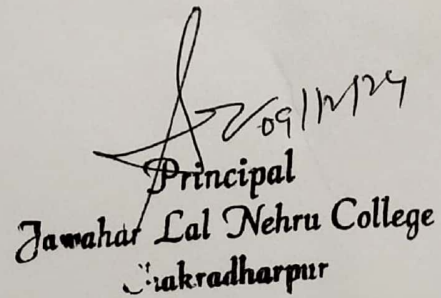 09/12/24
Principal
Jawahar Lal Nehru College
Chakradharpur